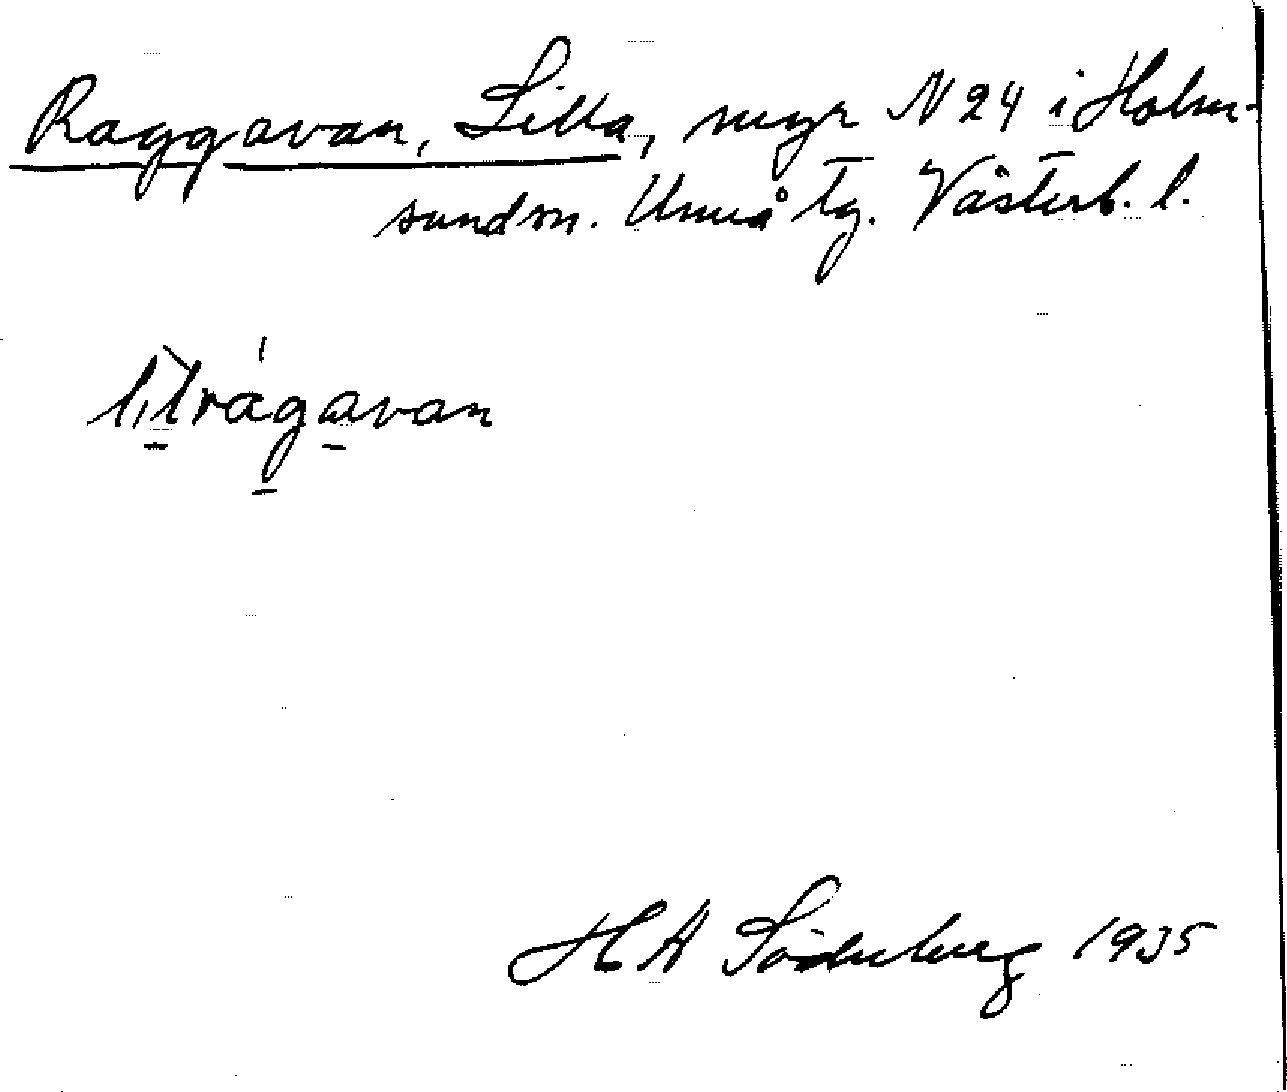 Raggavan, Lilla, mgr N 24 i Holm-
sundsn. Umeå tg. Västerb. l.
lìtrágavan
H A Söderberg 1935